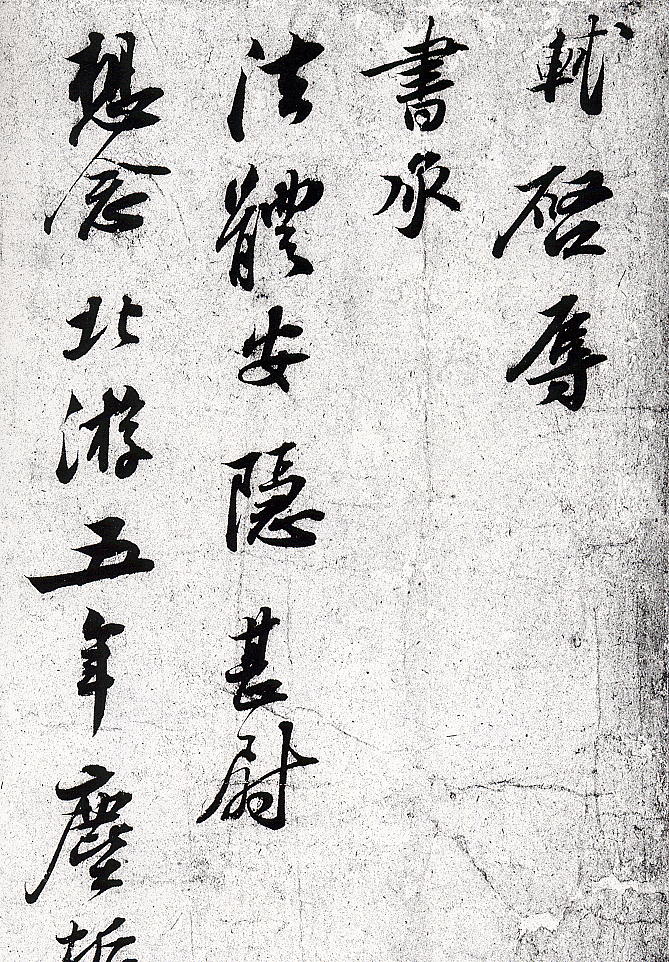 軾啓辱
書承
法體安隱甚尉
想念北游五年塵